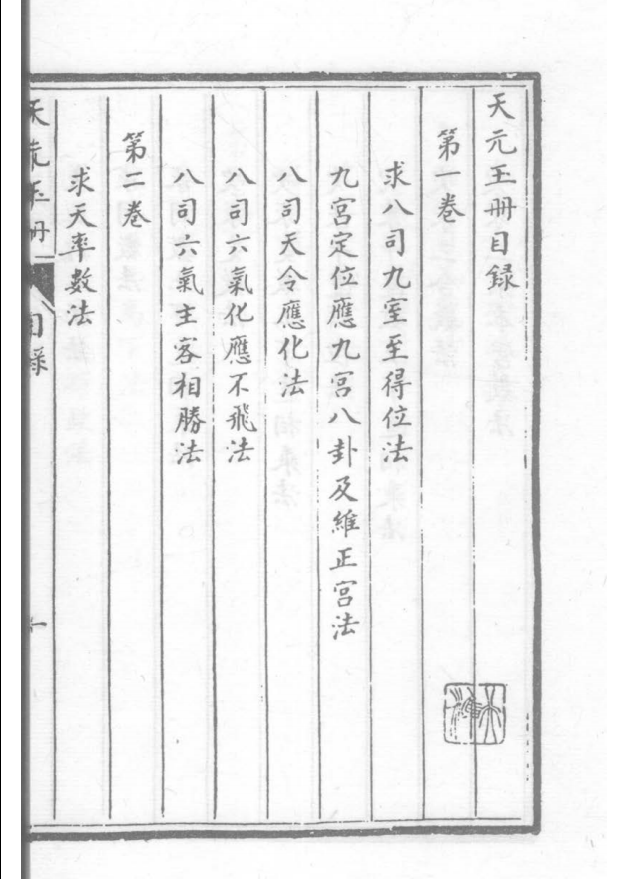 天元玉冊目録
第一卷
求八司九室至得位法
九宮定位應九宮八卦及維正宮法
八司天令應化法
八司六氣化應不飛法
八司六氣主客相勝法
第二卷
求天率數法
天元玉冊
目録
一